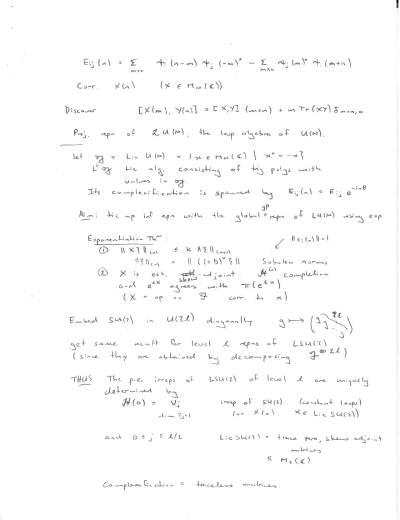 Eij(n) = Σ_{m>n} ψi(n-m) ψj(-m)* - Σ_{m≥0} ψj(m)* ψi(m+n)
Corr. X(n) (X ∈ M_N(C))
Discover [X(m), Y(n)] = [X,Y](m+n) + m Tr(XY) δ_{m+n,0}
Proj. repn of LU(N), the loop algebra of U(N).
Let g = Lie U(N) = {x ∈ M_N(C) | x* = -x}
L°g Lie alg. consisting of trig polys with
values in g
Its complexification is spanned by Eij(n) = Eij e^{-inθ}
Aim: tie up inf repn with the global gp repn of LU(N) using exp
Exponentiation Thm
① ||Xξ||(n) ≤ k ||ξ||(n+1) ||ξ||(n) = ||(1+D)^n ξ|| Sobolev norms
② X is ess. skew-adjoint. completion
and e^X agrees with π(e^x)
(X = op on F corr. to x)
Embed SU(2) in U(2ℓ) diagonally g ↦ (g g ... g)
get same result for level ℓ repns of LSU(2)
(since they are obtained by decomposing F^{⊗2ℓ})
THUS The p.e. irreps of LSU(2) of level ℓ are uniquely
determined by
H(0) = Vj irrep of SU(2) (constant loops)
dim 2j+1 (or X(0) X ∈ Lie SU(2))
and 0 ≤ j ≤ ℓ/2 Lie SU(2) = trace zero, skew adjoint
matrices
⊆ M2(C)
Complexification = traceless matrices.